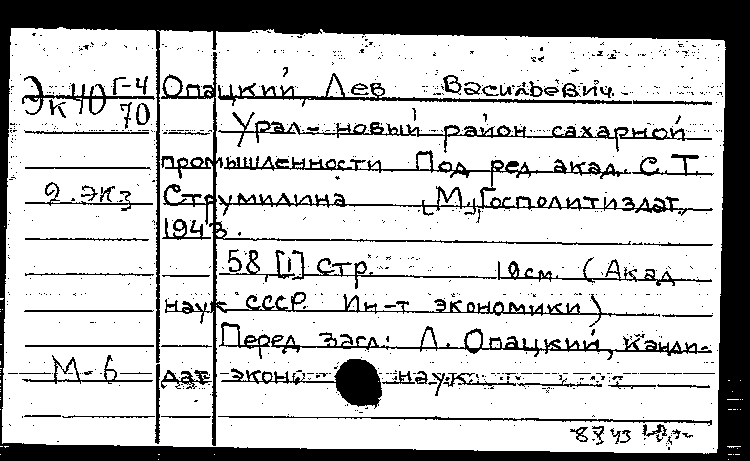 Эк 40 Г-4
70
Опацкий, Лев Васильевич.
Урал - новый район сахарной
промышленности Под ред акад. С. Т.
2. экз Струмилина [М.], Госполитиздат,
1943.
58, [1] стр. 10см. (Акад
наук СССР. Ин-т экономики)
Перед загл: Л. Опацкий, канди-
М-6 дат эконо наук